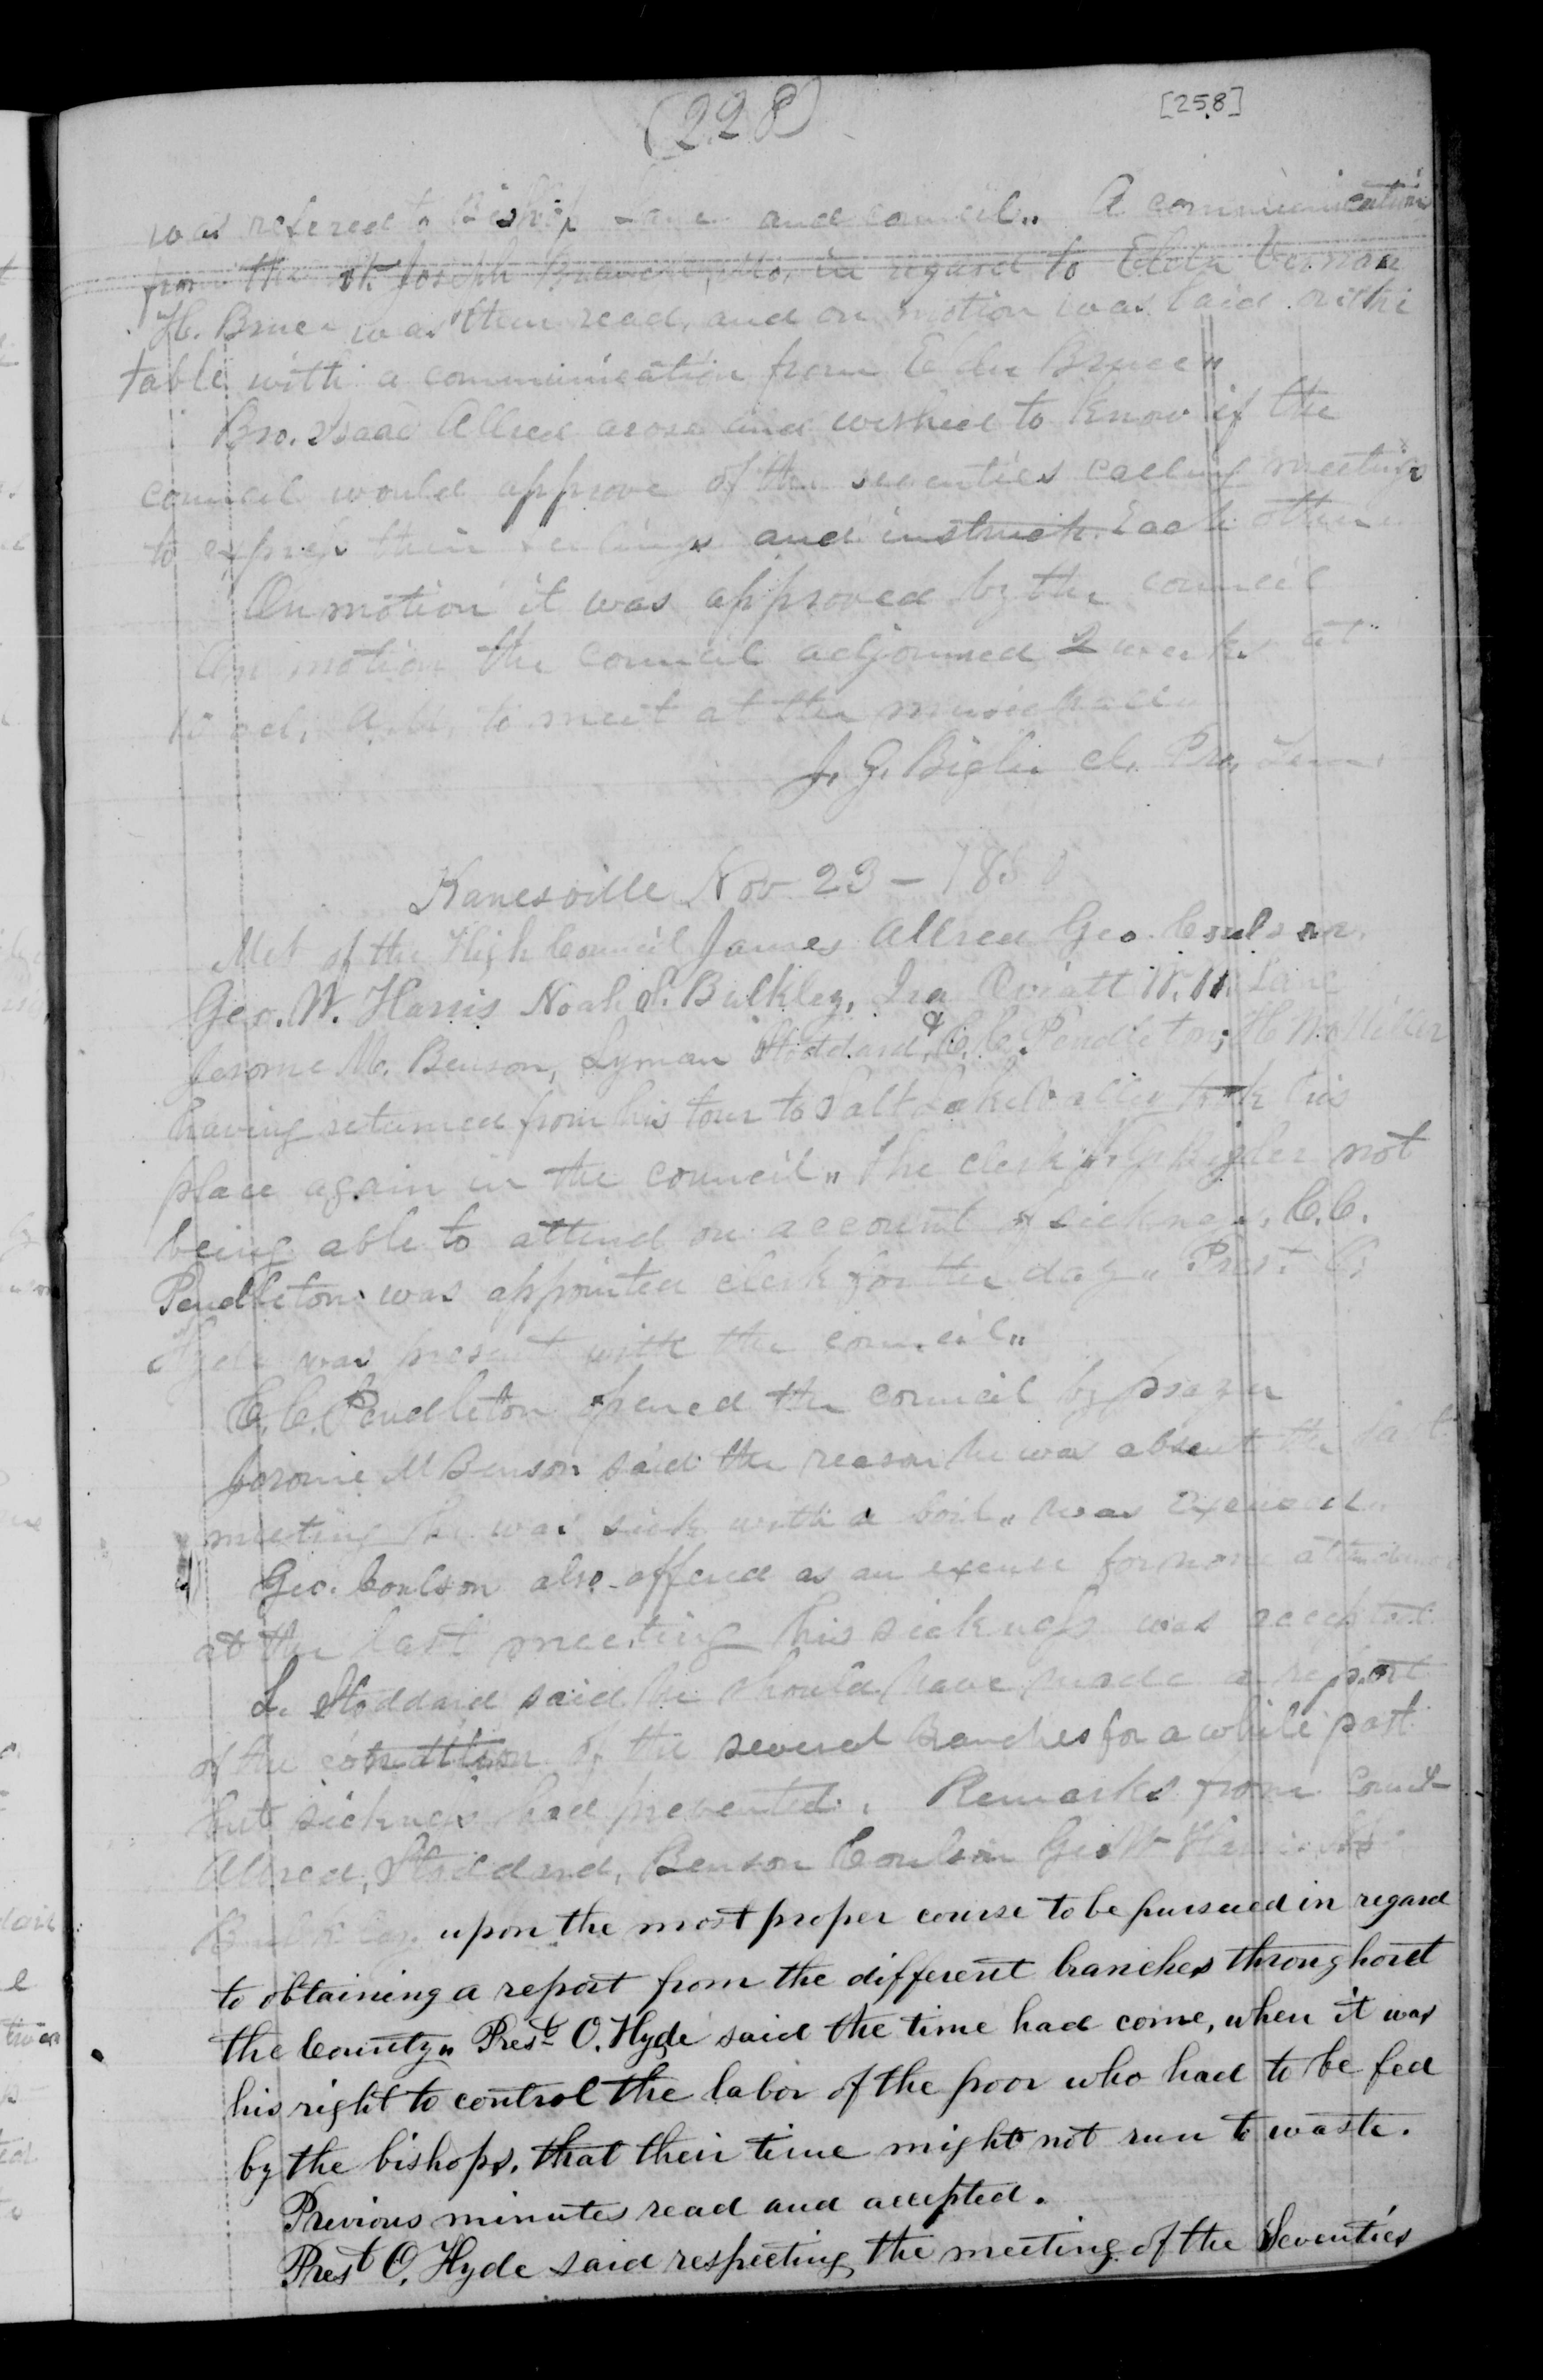 (228)
[258]
was refered to Bishop Lane and council„ A communication
from the St. Joseph Branch, Mo, in regard to Elder Vernon
H. Bruce was then read, and on motion was laid on the
table with a communication from Elder Bruce„
Bro. Isaac Allred arose and wished to know if the
council would approve of the seventies calling meetings
to express their feelings and instruct Each other
On motion it was approved by the council
On motion the council adjourned 2 weeks at
10 ocl, A.M. to meet at the music hall
J. G. Bigler cl. Pro, Tem.
Kanesville Nov 23 - 1850
Met of the High Council James Allred Geo. Coulson,
Geo. W. Harris Noah S. Bulkley, Ira Oviatt W. W. Lane
Jerome M. Benson, Lyman Stoddard, & C. C. Pendleton; H W Miller
having returned from his tour to Salt Lake Valley took his
place again in the council„ The clerk J. G. Bigler not
being able to attend on account of sickness, C.C.
Pendleton was appointed clerk for the day„ Prest. O.
Hyde was present with the council„
C. C. Pendleton opened the council by prayer
Jerome M Benson said the reason he was absent the last
meeting he was sick with a boil„ was excused„
Geo. Coulson also offered as an excuse for none attendance
at the last meeting his sickness was accepted
L. Stoddard said he should have made a report
of the condition of the several Branches for a while past
but sickness had prevented. Remarks from Councl
Allred, Stoddard, Benson Coulson Geo W Harris
Bulkley upon the most proper course to be pursued in regard
to obtaining a report from the different branches throughout
the County„ Prest O. Hyde said the time had come, when it was
his right to control the labor of the poor who had to be fed
by the bishops, that their time might not run to waste.
Previous minutes read and accepted.
Prest O. Hyde said respecting the meeting of the Seventies